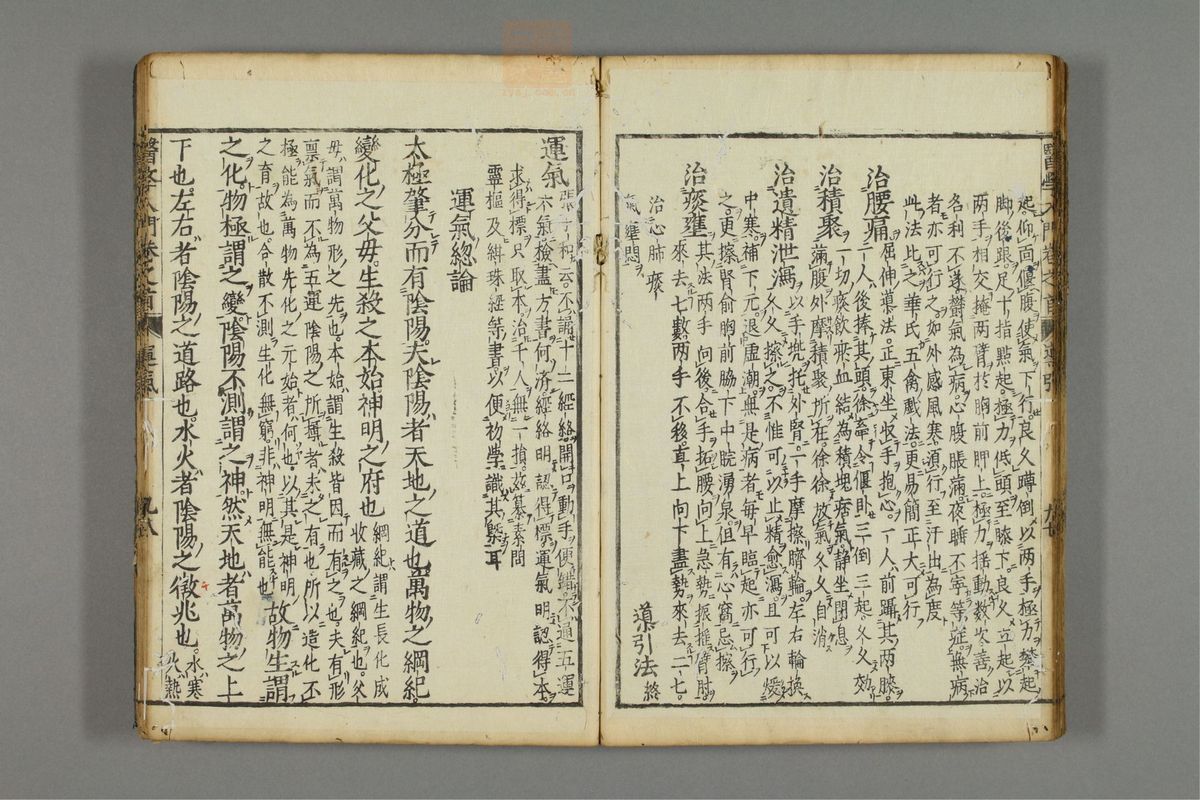 起仰面偃腹使氣下行良久蹲倒以兩手極力攀起
脚後跟足十指點起極力低頭至膝下良久立起以
兩手相交掩兩臂於胸前押上極力揺動數次善治
各利不遂鬱氣為病心腹脹滿夜睡不寧等症無病
者亦可行之如外感風寒須行至汗出為度
此法比之華氏五禽戲法更易簡正大可行
治腰痛屈伸導法正東坐收手抱心一人前躡其兩膝
一人後捧其頭徐牽令偃卧三倒三起久久効
治積聚一切痰飲瘀血結為積塊痞氣静坐閉息
滿腹外摩積聚所在徐徐放氣久久自消
治遺精泄瀉以手兜托外腎一手摩擦臍輪左右輪換
久久擦之不惟可以止精愈瀉且可以煖
中寒補下元退虛潮無是病者每早臨起亦可行
之更擦腎俞胸前脇下中脘湧泉但有心窩忌擦
治痰壅其法兩手向後合手拓腰向上急勢振揺臂肘
來去七數兩手不移直上向下盡勢來去二七
治心肺痰
氣壅悶
導引法終
運氣張子和云不誦十二經絡開口動手便錯不通五運
六氣檢盡方書何濟經絡明認得標運氣明認得本
求得標只取本治千人無一損兹纂素問
靈樞及綱珠經等書以便初學識其緊耳
運氣總論
太極肇分而有陰陽天陰陽者天地之道也萬物之綱紀
變化之父母生殺之本始神明之府也綱紀謂生長化成收藏之綱紀也父
母謂萬物形之先也本始謂生殺皆因而有之也夫有形
禀氣而不為五運陰陽之所攝者未之有也所以造化不
極能為萬物先化之元始者何也以其是神明
之育故也合散不測生化無窮非神明無能也故物生謂
之化物極謂之變陰陽不測謂之神然天地者萬物之上
下也左右者陰陽之道路也水火者陰陽之徵兆也水寒火熱